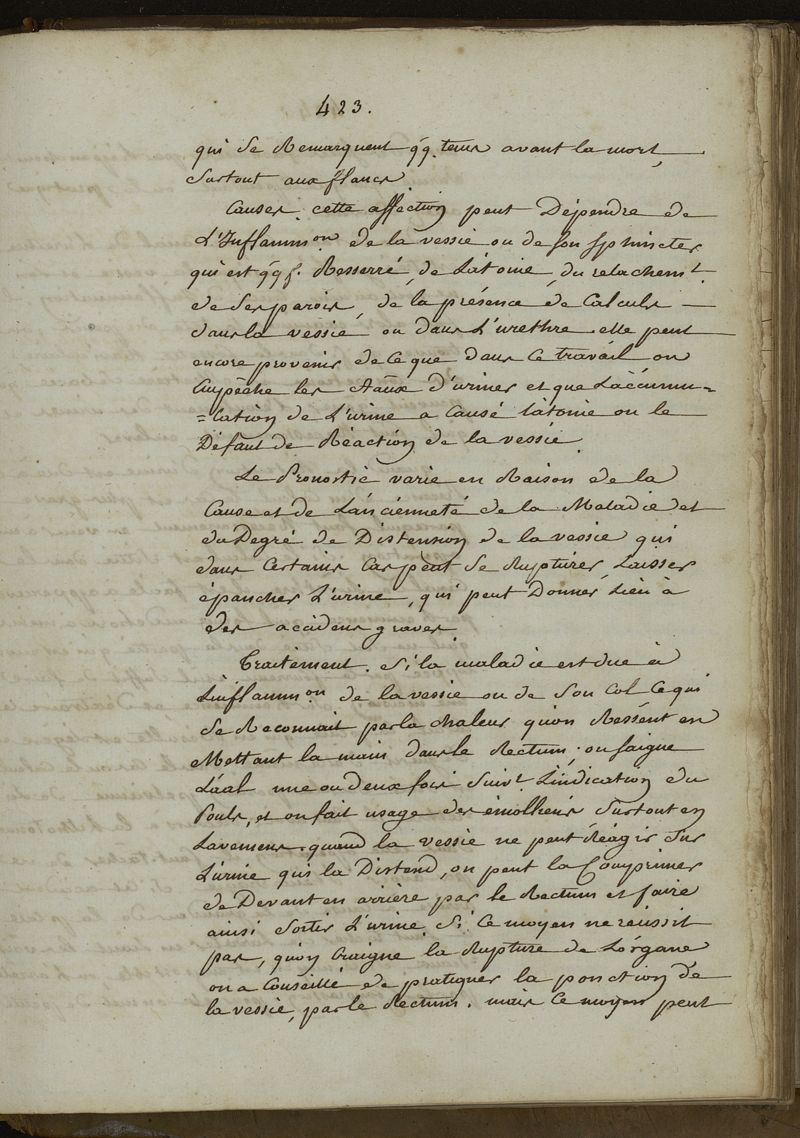 423.
qui se Remarquent qq. tems avant la mort,
surtout aux flancs.
Causes. cette affection peut Dépendre de
L'Inflammon de la vessie ou de son sphincter
qui est qqf. Resserré, de L'atonie, du relachemt.
de ses parois, de la présence de Calculs
dans la vessie ou dans L'urethre. elle peut
encore provenir de ce que dans ce travail on
empêche les Aãux D'uriner et que L'accumu=
=lation de L'urine a causé l'atonie ou le
Défaut de Réaction de la vessie.
Le Pronostic varie en Raison de la
Cause et de L'ancienneté de la Maladie et
du Degré de Distension de la vessie qui
dans certains cas peut se Rupturer, Laisser
épancher L'urine, qui peut Donner Lieu à
des accidens graves.
Traitement. Si la maladie est due à
L'inflammon de la vessie ou de son Col ce qui
se Reconnait par la chaleur qu'on Ressent en
Mettant la main dans le Rectum; on saigne
L'aal une ou deux fois suivt. L'indication du
Pouls, et on fait usage des émolliens surtout en
Lavemens. quand la vessie ne peut Réagir sur
L'urine qui la Distend, on peut la Comprimer
de Devant en arrière par le Rectum et faire
ainsi sortir L'urine. Si ce moyen ne réussit
pas, qu'on craigne la Rupture de L'organe
on a Conseillé de pratiquer la ponction de
la vessie, par le Rectum. mais ce moyen peut